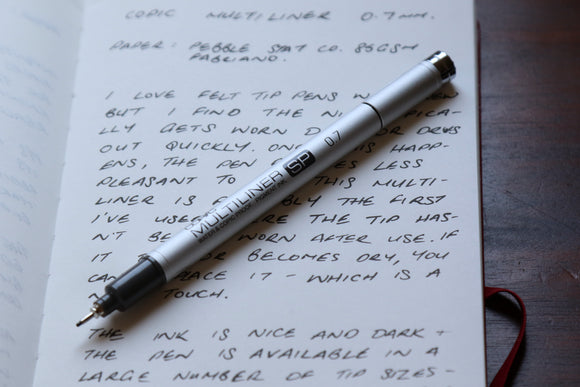 COPIC MULTILINER 0.7MM.
PAPER: PEBBLE STAT CO. 85GSM
FABRIANO.
I LOVE FELT TIP PENS
BUT I FIND THE PICA-
LLY GETS WORN OR DRYS
OUT QUICKLY. THIS HAPP-
ENS, THE PEN LESS
PLEASANT TO THIS MULTI-
LINER IS THE FIRST
I'VE THE TIP HAS-
N'T WORN AFTER USE. IF
IT OR BECOMES DRY, YOU
IT - WHICH IS A
TOUCH.
THE INK IS NICE AND DARK +
THE PEN IS AVAILABLE IN A
LARGE NUMBER OF TIP SIZES-
MULTILINER SP 0.7
WATER & COPIC PROOF · PIGMENT INK